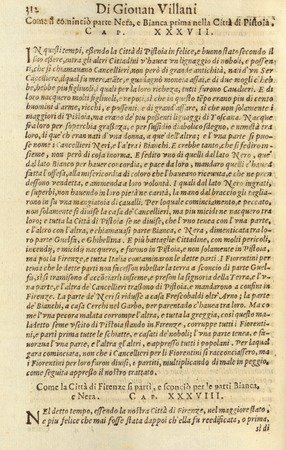 312 Di Giouan Villani
Come si cominciò parte Nera, e Bianca prima nella Città di Pistoia.
C A P. X X X V I I.
IN questi tempi, essendo la Città di Pistoia in felice, e buono stato secondo il
suo essere, intra gli altri Cittadini v'hauea vn lignaggio di nobili, e possen-
ti, che si chiamauano Cancellieri, non però di grande antichità, nati d'vn Ser
Cancelliere,
hebbe più figliuoli, i quali per la loro ricchezza, tutti furono Caualieri. E di
loro nacquero molti figliuoli, e nepoti, sì che in questo tempo erano più di cento
huomini d'arme, ricchi, e possenti, e di grand'affare, sì che non solamente i
maggiori di Pistoia, ma erano de' più possenti lignaggi di Toscana. Nacque
tra loro per soperchia grassezza, e per sussidio diabolico sdegno, e nimistà tra
loro, tra quelli ch'erano nati d'vna donna, a que' dell'altra; e l'vna parte si pose
nome i Cancellieri Neri, e l'altra i Bianchi. E crebbe tanto, che si fediro in-
sieme, non però di cosa inorma. E fedito vno di quelli dal lato Nero, que'
dal lato Bianco per hauere concordia, e pace da loro, mandaro quelli c'hauea
fatta l'offesa, alla misericordia di coloro che l'haueano riceuuta, che ne pren-
dessono vendetta, e ammenda a loro volontà. I quali del lato Nero ingrati,
e superbi, non hauendo in loro pietà ne carità, la mano dal braccio gli taglia-
rono in su vna mangiatoia di caualli. Per loquale cominciamento, e peccato,
non solamente si diuise la casa de' Cancellieri, ma più micidi ne nacquero tra
loro; e tutta la Città di Pistoia se ne diuise, che l'vno tenea con l'vna parte,
e l'altro con l'altra, e chiamauasi parte Bianca, e Nera, dimenticata tra lo-
ro parte Guelfa, e Ghibellina. E più battaglie Cittadine, con molti pericoli,
incendij, e micidij nacquero, e furono in Pistoia, e non solamente in Pistoia,
ma poi la Firenze, e tutta Italia contaminaro le dette parti. I Fiorentini per
tema che le dette parti non facessero ribellar la terra a sconcio di parte Guel-
fa, s'intramisero d'acconciarli insieme, e presono la signoria della Terra, e l'v-
na parte, e l'altra de' Cancellieri trassono di Pistoia, e mandarono a confini in
Firenze. La parte de' Neri si ridusse a casa Frescobaldi oltr'Arno; la parte
de' Bianchi, a casa Cerchi nel Garbo, per parentado c'hauea tra loro. Ma co-
me l'vna pecora malata corrompe l'altra, e tutta la greggia, così questo ma-
ladetto seme vscito di Pistoia stando in Firenze, corruppe tutti i Fiorenti-
ni, e partì prima tutte le schiatte, e casati de' nobili, e l'vna parte tenea, e fa-
uoraua l'vna parte, e l'altra l'altra, e appresso tutti i popolani. Per la qual
gara cominciata, non che i Cancellieri per li Fiorentini si racconciassero, ma
i Fiorentini per loro furon diuisi, e partiti, multiplicando di male in peggio,
come seguita appresso il nostro trattato.
Come la Città di Firenze si partì, e sconciò per le parti Bianca,
e Nera. C A P. X X X V I I I.
NEl detto tempo, essendo la nostra Città di Firenze, nel maggiore stato,
e più felice che mai fosse stata dappoi ch'ella fu reedificata, o prima,
sì di